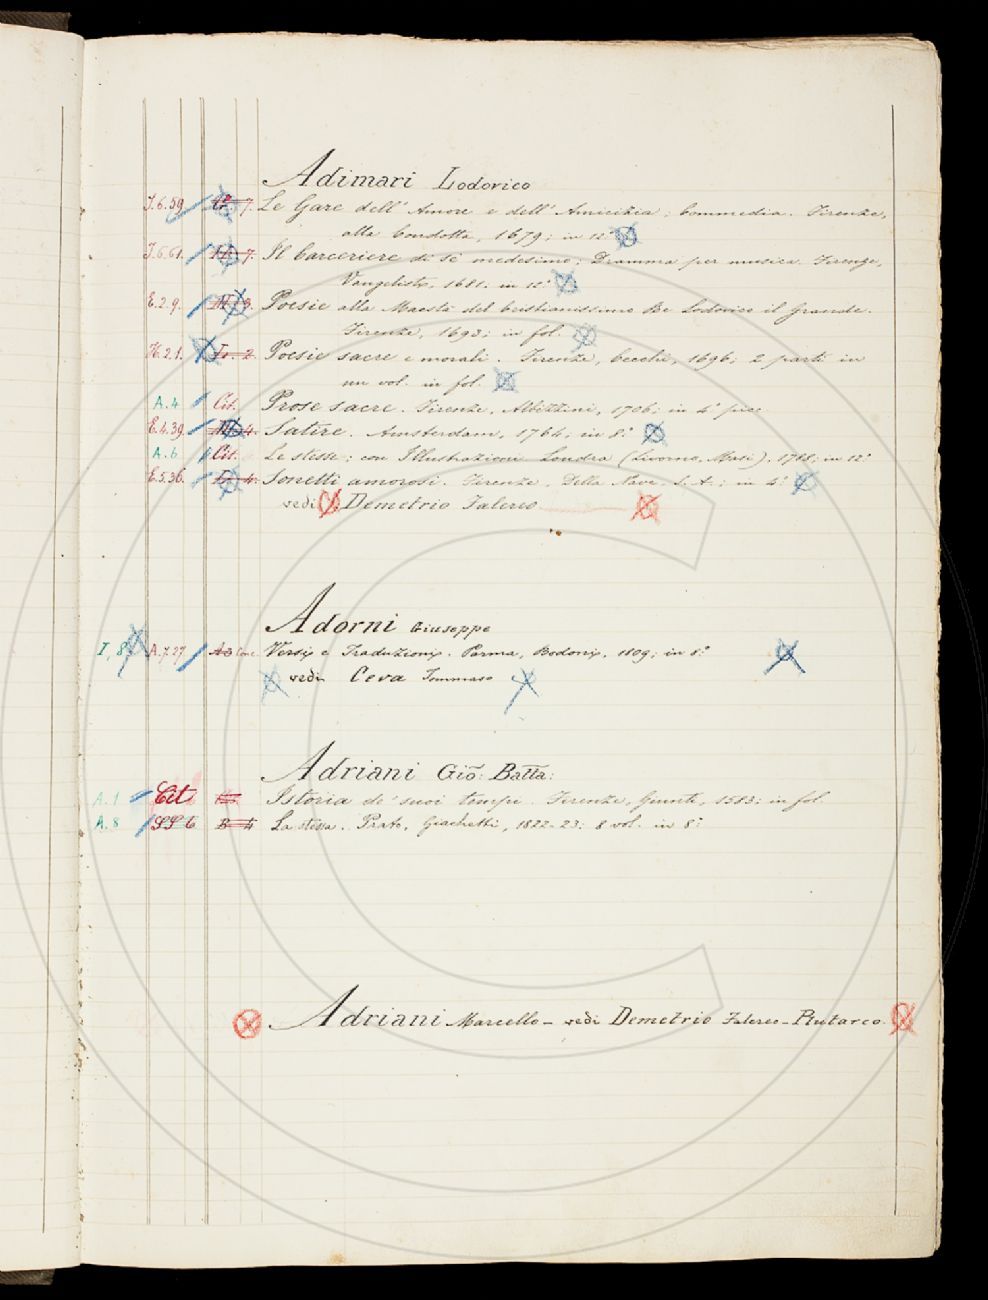 Adimari Lodovico
I.6.59 7. Le Gare dell' Amore e dell' Amicizia; Commedia. Firenze,
alla Condotta, 1679; in 12°
I.6.61. 7. Il Carceriere di sè medesimo; Dramma per musica. Firenze,
Vangelisti, 1681. in 12°
E.2.9. 3. Poesie alla Maestà del Cristianissimo Re Lodovico il Grande.
Firenze, 1693; in fol.
H.2.1. 2 Poesie sacre e morali. Firenze, Cecchi, 1696; 2 parti in
un vol. in fol.
A.4 Cit. Prose sacre. Firenze, Albizzini, 1706; in 4° picc.
E.4.39 4. Satire. Amsterdam, 1764; in 8°
A.6 Cit. Le stesse; con Illustrazioni Londra (Livorno, Masi). 1788; in 12°
E.5.36. 4. Sonetti amorosi. Firenze, Della Nave. S.A.; in 4°
vedi Demetrio Falereo
Adorni Giuseppe
I, 8 A.7.27 Versi e Traduzioni. Parma, Bodoni, 1809; in 8°
vedi Ceva Tommaso
Adriani Gio: Batta:
A.1 Cit Istoria de' suoi tempi. Firenze, Giunti, 1583; in fol.
A.8 SS 6 B 4 La stessa. Prato, Giachetti, 1822-23; 8 vol. in 8°
Adriani Marcello - vedi Demetrio Falereo - Plutarco.